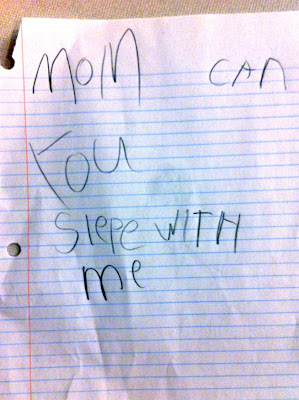 MOM CAN
YOU
Slepe WITH
me